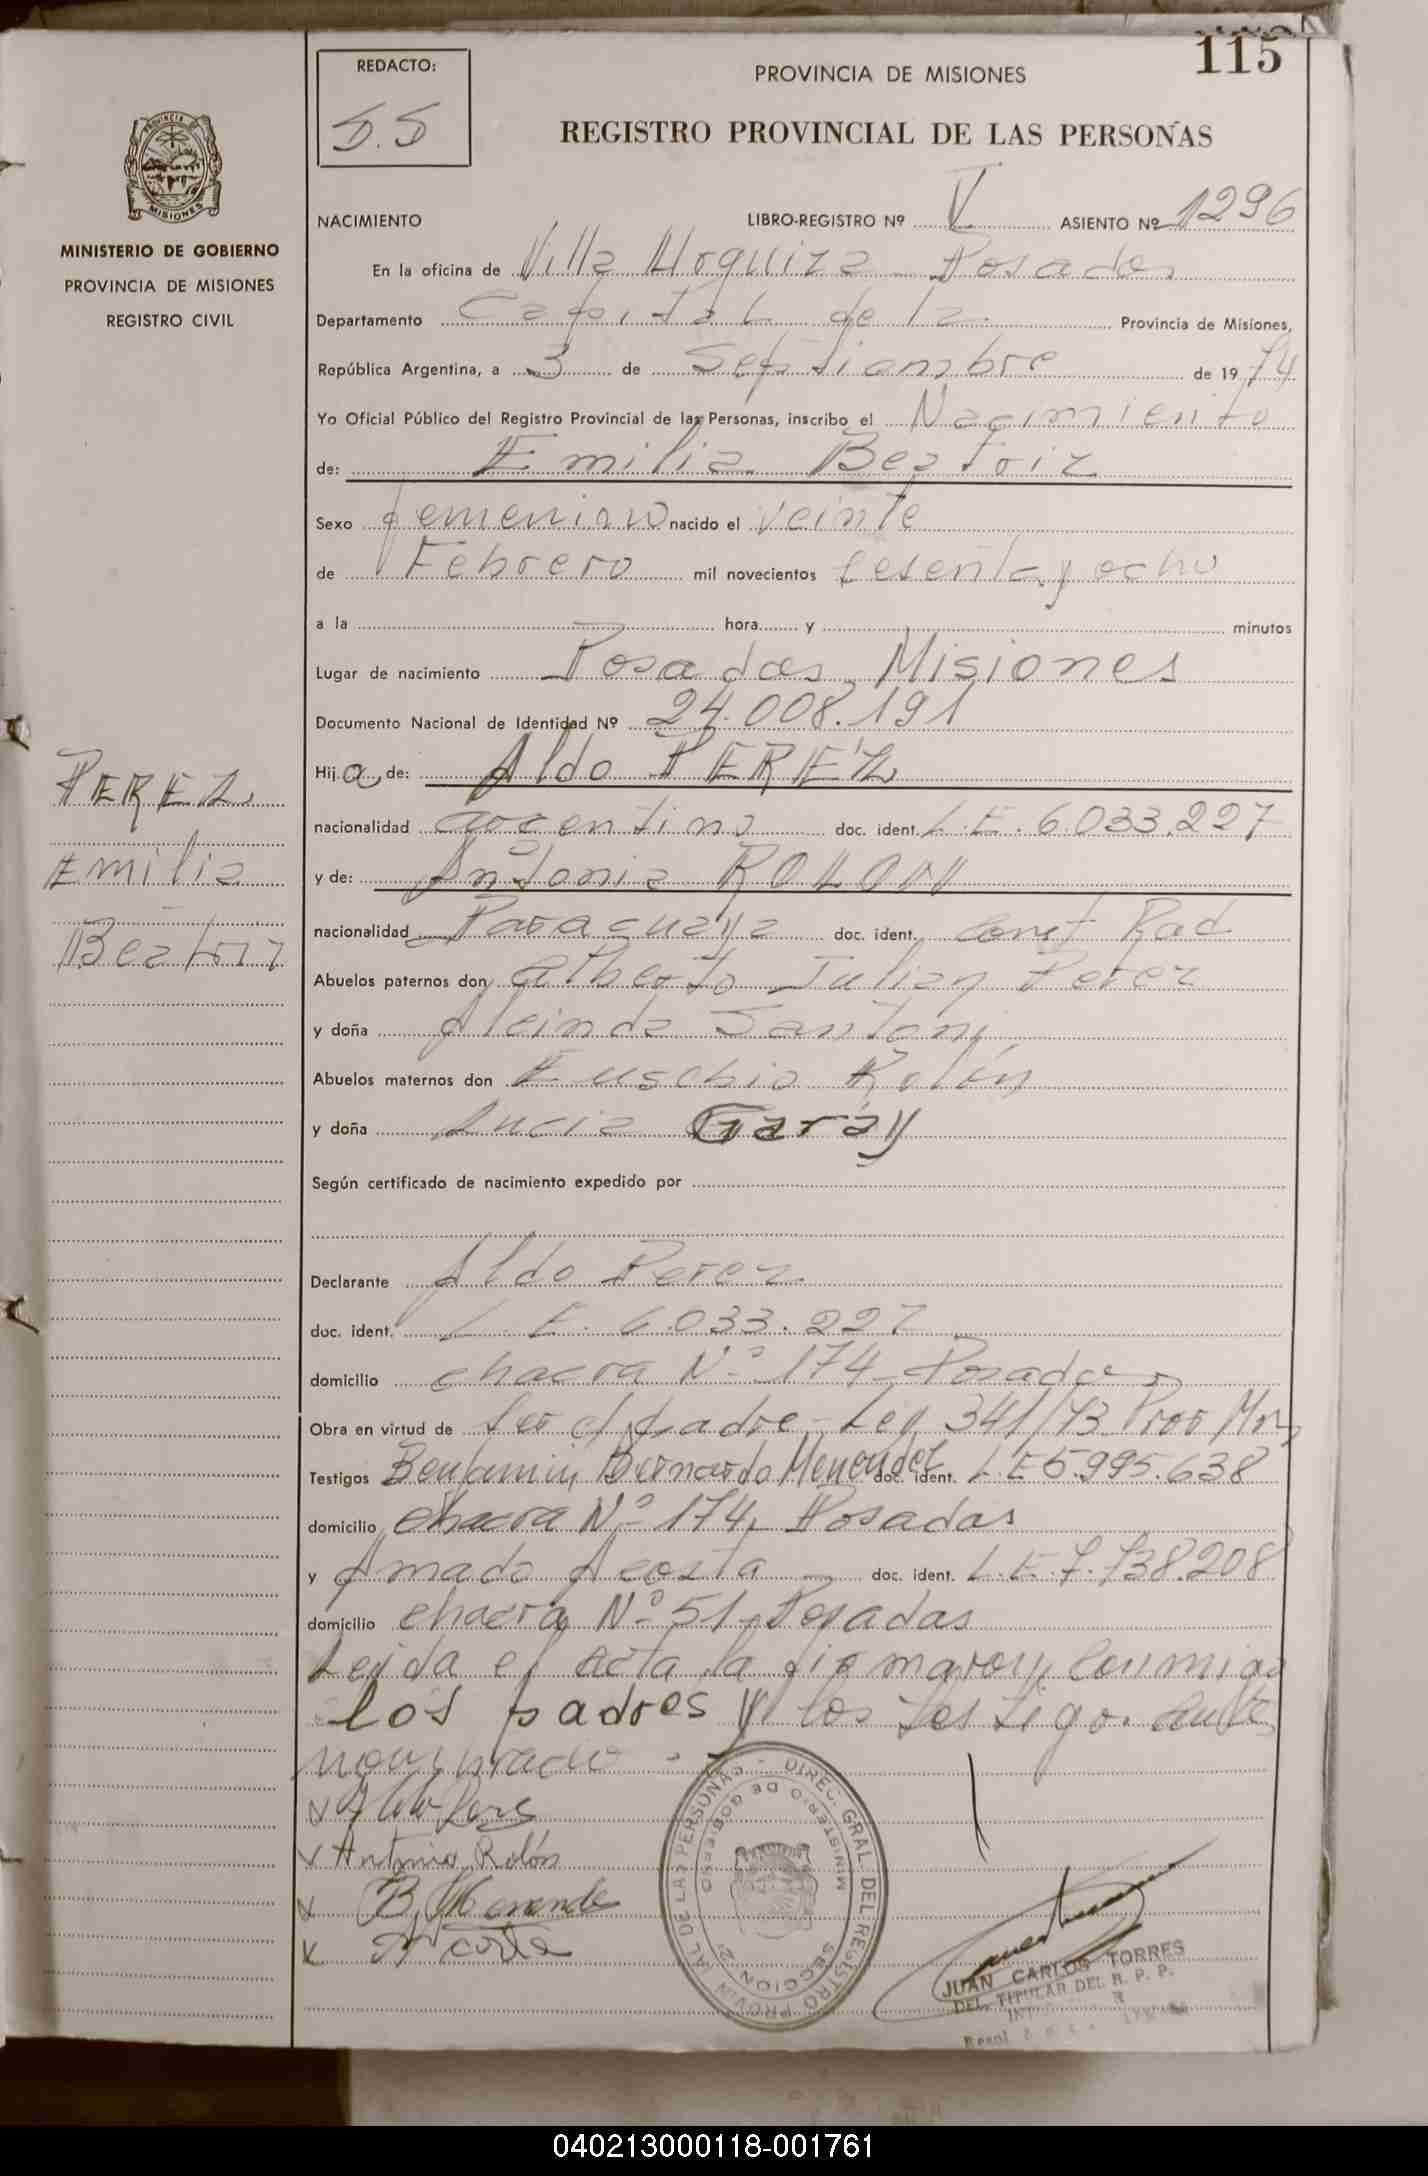 115
REDACTO:
PROVINCIA DE MISIONES
REGISTRO PROVINCIAL DE LAS PERSONAS
PROVINCIA DE
MISIONES
MINISTERIO DE GOBIERNO
PROVINCIA DE MISIONES
REGISTRO CIVIL
NACIMIENTO LIBRO-REGISTRO Nº V ASIENTO Nº 1296
En la oficina de Villa Urquiza Posadas
Departamento Capital de la Provincia de Misiones,
República Argentina, a 3 de Septiembre de 1974
Yo Oficial Público del Registro Provincial de las Personas, inscribo el Nacimiento
de: Emilia Beatriz
Sexo femenino nacido el veinte
de Febrero mil novecientos sesenta y ocho
a la hora y minutos
Lugar de nacimiento Posadas, Misiones
Documento Nacional de Identidad Nº 24.008.191
Hija de: Aldo PEREZ
nacionalidad argentino doc. ident. L.E. 6.033.227
y de: Antonia ROLON
nacionalidad Paraguaya doc. ident. Const Rad
Abuelos paternos don Alberto Julian Perez
y doña Alcinda Santoni
Abuelos maternos don Eusebio Rolón
y doña Lucia Garay
Según certificado de nacimiento expedido por
Declarante Aldo Perez
doc. ident. L.E. 6.033.227
domicilio chacra Nº 174 Posadas
Obra en virtud de Ser el padre - Ley 341/73
Testigos Benjamin Bernardo Menendez doc. ident. L.E 5.995.638
domicilio chacra Nº 174, Posadas
y Amado Acosta doc. ident. L.E. 7.738.208
domicilio chacra Nº 51, Posadas
Leida el acta la firmaron conmigo
los padres y los testigo.
PEREZ
Emilia
Beatriz
Antonia Rolón
B. Menendez
DIREC. GRAL. DEL REGISTRO PROVINCIAL DE LAS PERSONAS
MINISTERIO DE GOBIERNO
SECCION 2ª
JUAN CARLOS TORRES
DEL. TITULAR DEL R. P. P.
040213000118-001761